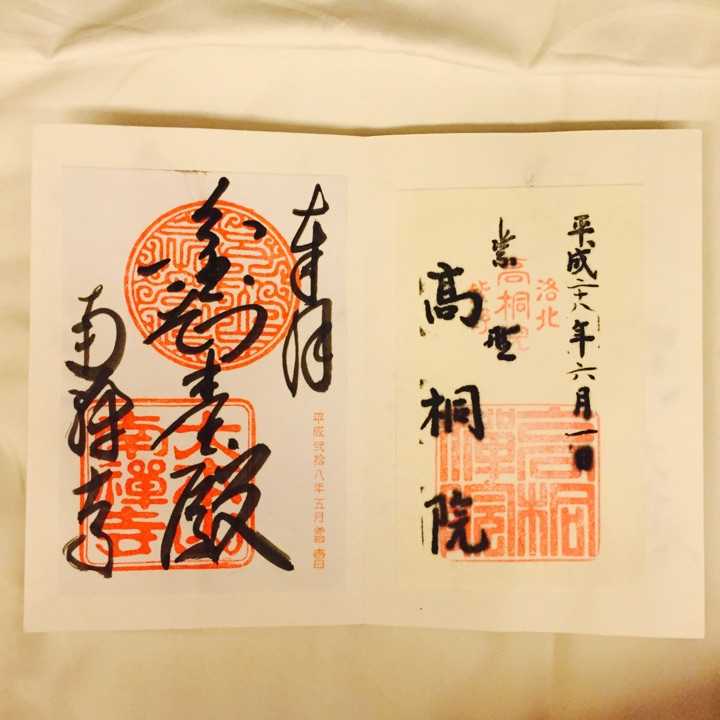 平成二十八年六月一日
洛北
高桐院
紫野
紫野
高桐院
高桐
禅院
奉拝
金剛殿
南禅寺
平成弐拾八年五月
大本山
南禅寺